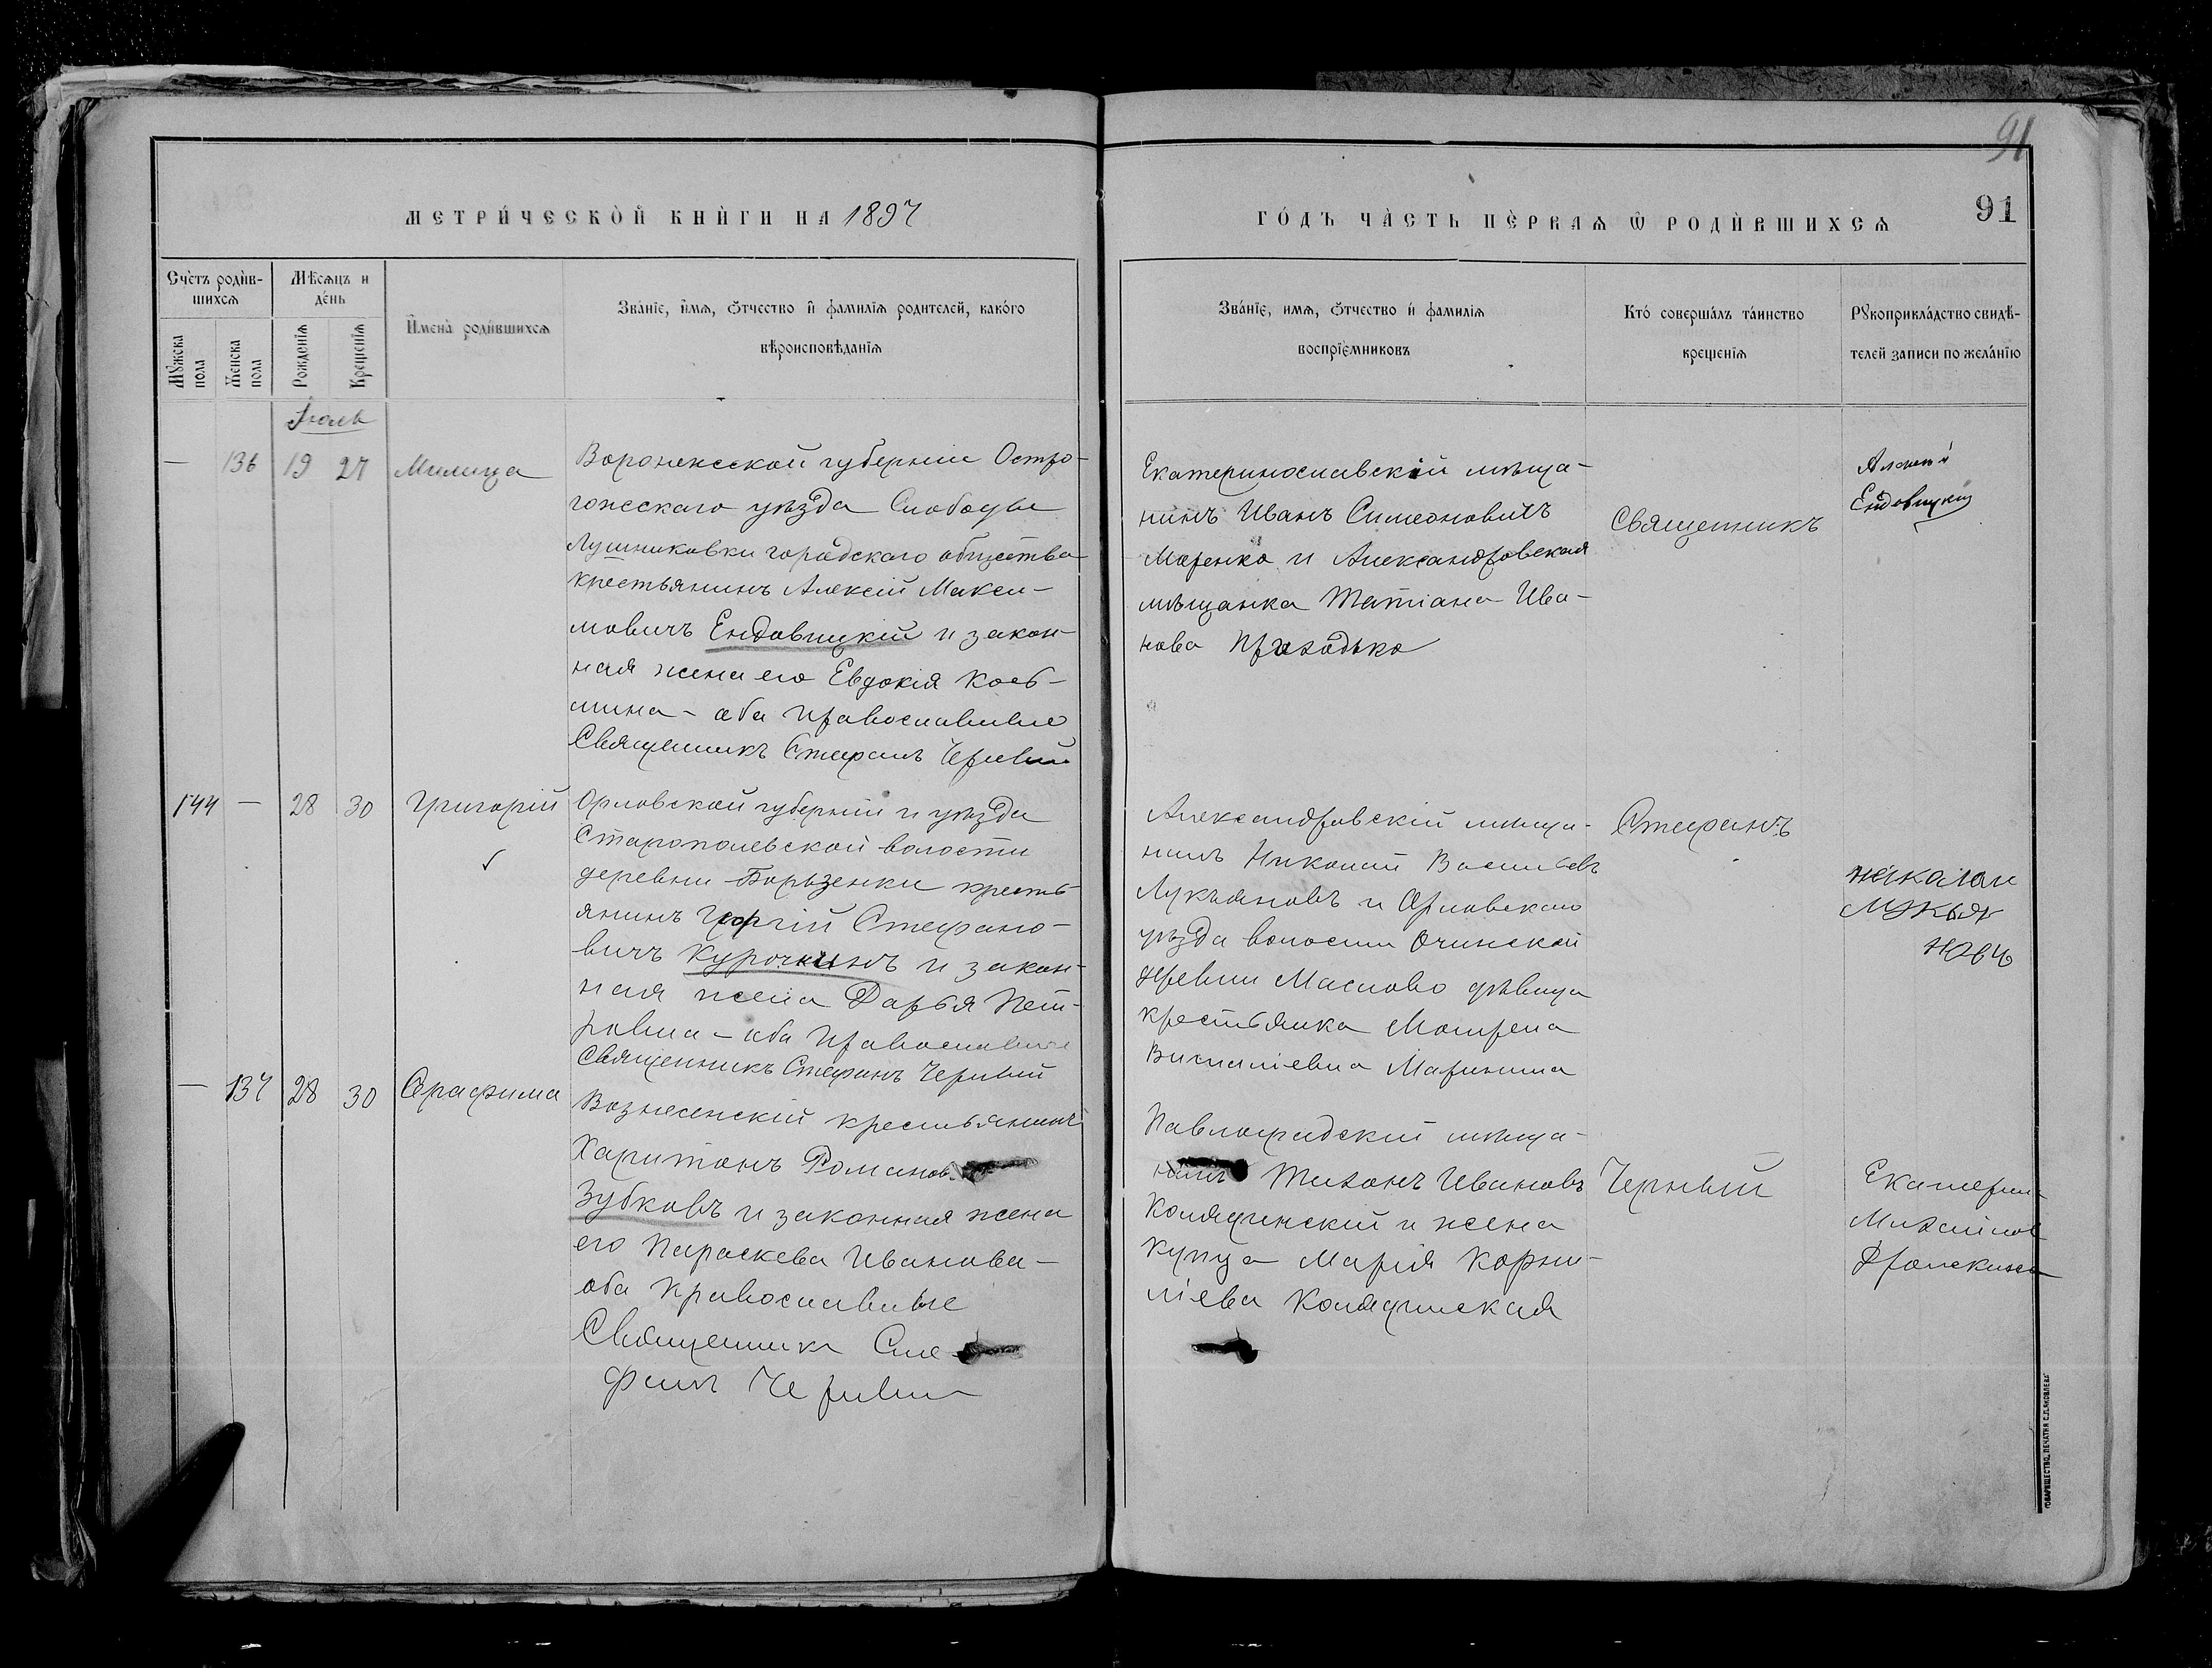 91
МЕТРИ́ЧЕСКОЙ КНИ́ГИ НА 1897
ГО́ДЪ ЧА́СТЬ ПЕ́РВАѦ Ѡ҆ РОДИ́ВШИХСѦ
91
Сче́тъ роди́в-
шихсѧ
Мꙋ́жеска пола
Же́нска пола
Мѣ́сѧцъ и де́нь
Рожде́нїѧ
Креще́нїѧ
И҆мена̀ роди́вшихсѧ
Зва́нїе, и҆́мѧ, ѻ҆́тчество и҆ фами́лїѧ роди́телей, како́го
вѣроисповѣ́данїѧ
Зва́нїе, и҆́мѧ, ѻ҆́тчество и҆ фами́лїѧ
воспрїе́мниковъ
Кто́ соверша́лъ та́инство
креще́нїѧ
Рꙋкоприкла́дство свидѣ́-
телей за́писи по жела́нїю
Іюль
— 136 19 27 Милица
Воронежской губерніи Остро-
гожскаго уѣзда Слободы
Лушниковки городскаго общества
крестьянинъ Алексій Макси-
мовичъ Ендовицкій и закон-
ная жена его Евдокія Козь-
мина - оба православные
Священникъ Стефанъ Черный
Екатеринославскій мѣща-
нинъ Иванъ Симеоновичъ
Маренко и Александровская
мѣщанка Татіана Ива-
нова Приходько
Священникъ
Алексѣй
Ендовицкій
144 — 28 30 Григорій
Орловской губерніи и уѣзда
Старопольской волости
деревни Борзенки кресть-
янинъ Георгій Стефано-
вичъ Курочкинъ и закон-
ная жена Дарья Пет-
ровна - оба православные
Священникъ Стефанъ Черный
Александровскій мѣща-
нинъ Николай Васильевъ
Лукьяновъ и Орловскаго
уѣзда волости
деревни Маслово дѣвица
крестьянка Матрена
Виталіевна Маринина
Стефанъ
николай
лукья
новъ
— 137 28 30 Серафима
Вознесенскій крестьянинъ
Харитонъ Романов
Зубковъ и законная жена
его Параскева Иванова -
оба православные
Священникъ Сте
фанъ Черный
Павлоградскій мѣща-
нинъ Тихонъ Ивановъ
Колядинскій и жена
купца Марія Корни-
ліева Колядинская
Черный
Екатерин
Михайлов
ТОВАРИЩЕСТВО, ПЕЧАТНЯ С. П. ЯКОВЛЕВА